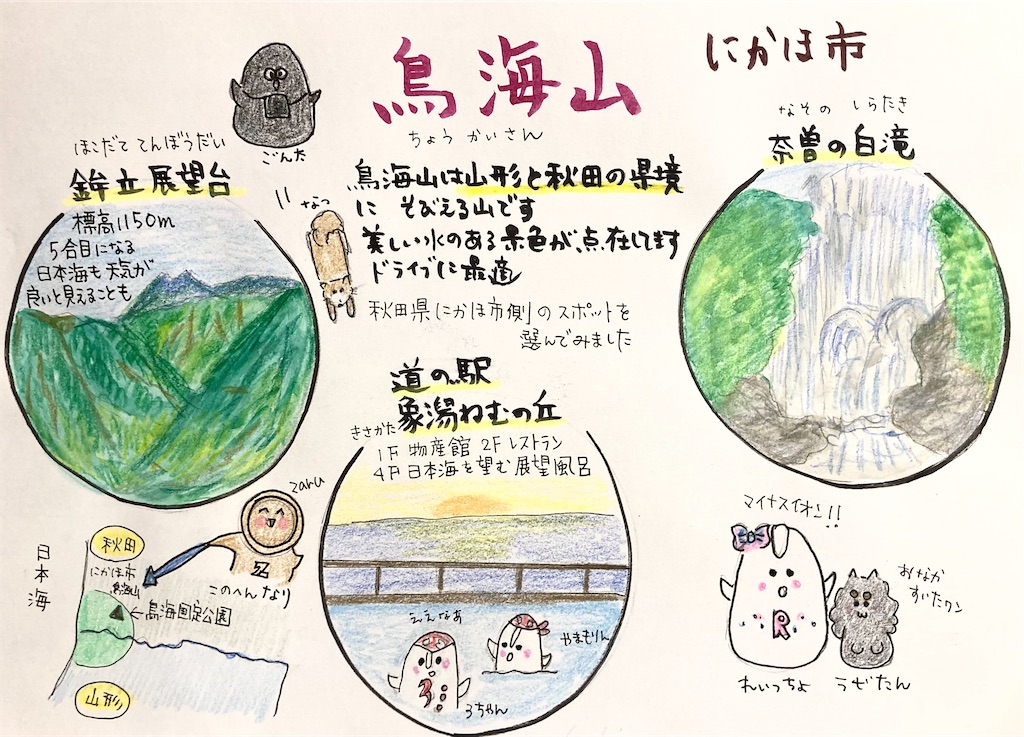 鳥海山
にかほ市
ちょうかいさん
ごんた
ほこだててんぼうだい
鉾立展望台
標高1150m
5合目になる
日本海も天気が
良いと見えることも
なつ
鳥海山は山形と秋田の県境
に そびえる山です
美しい水のある景色が点在してます
ドライブに最適
秋田県にかほ市側のスポットを
選んでみました
なその しらたき
奈曽の白滝
道の駅
象潟ねむの丘
きさかた
1F 物産館 2F レストラン
4F 日本海を望む展望風呂
ええなあ
やまもりん
3ちゃん
zaru
Z
このへんなり
秋田
にかほ市
鳥海山
←鳥海国定公園
日本海
山形
マイナスイオン!!
R
おなか
すいたワン
れいっちょ
うぜたん